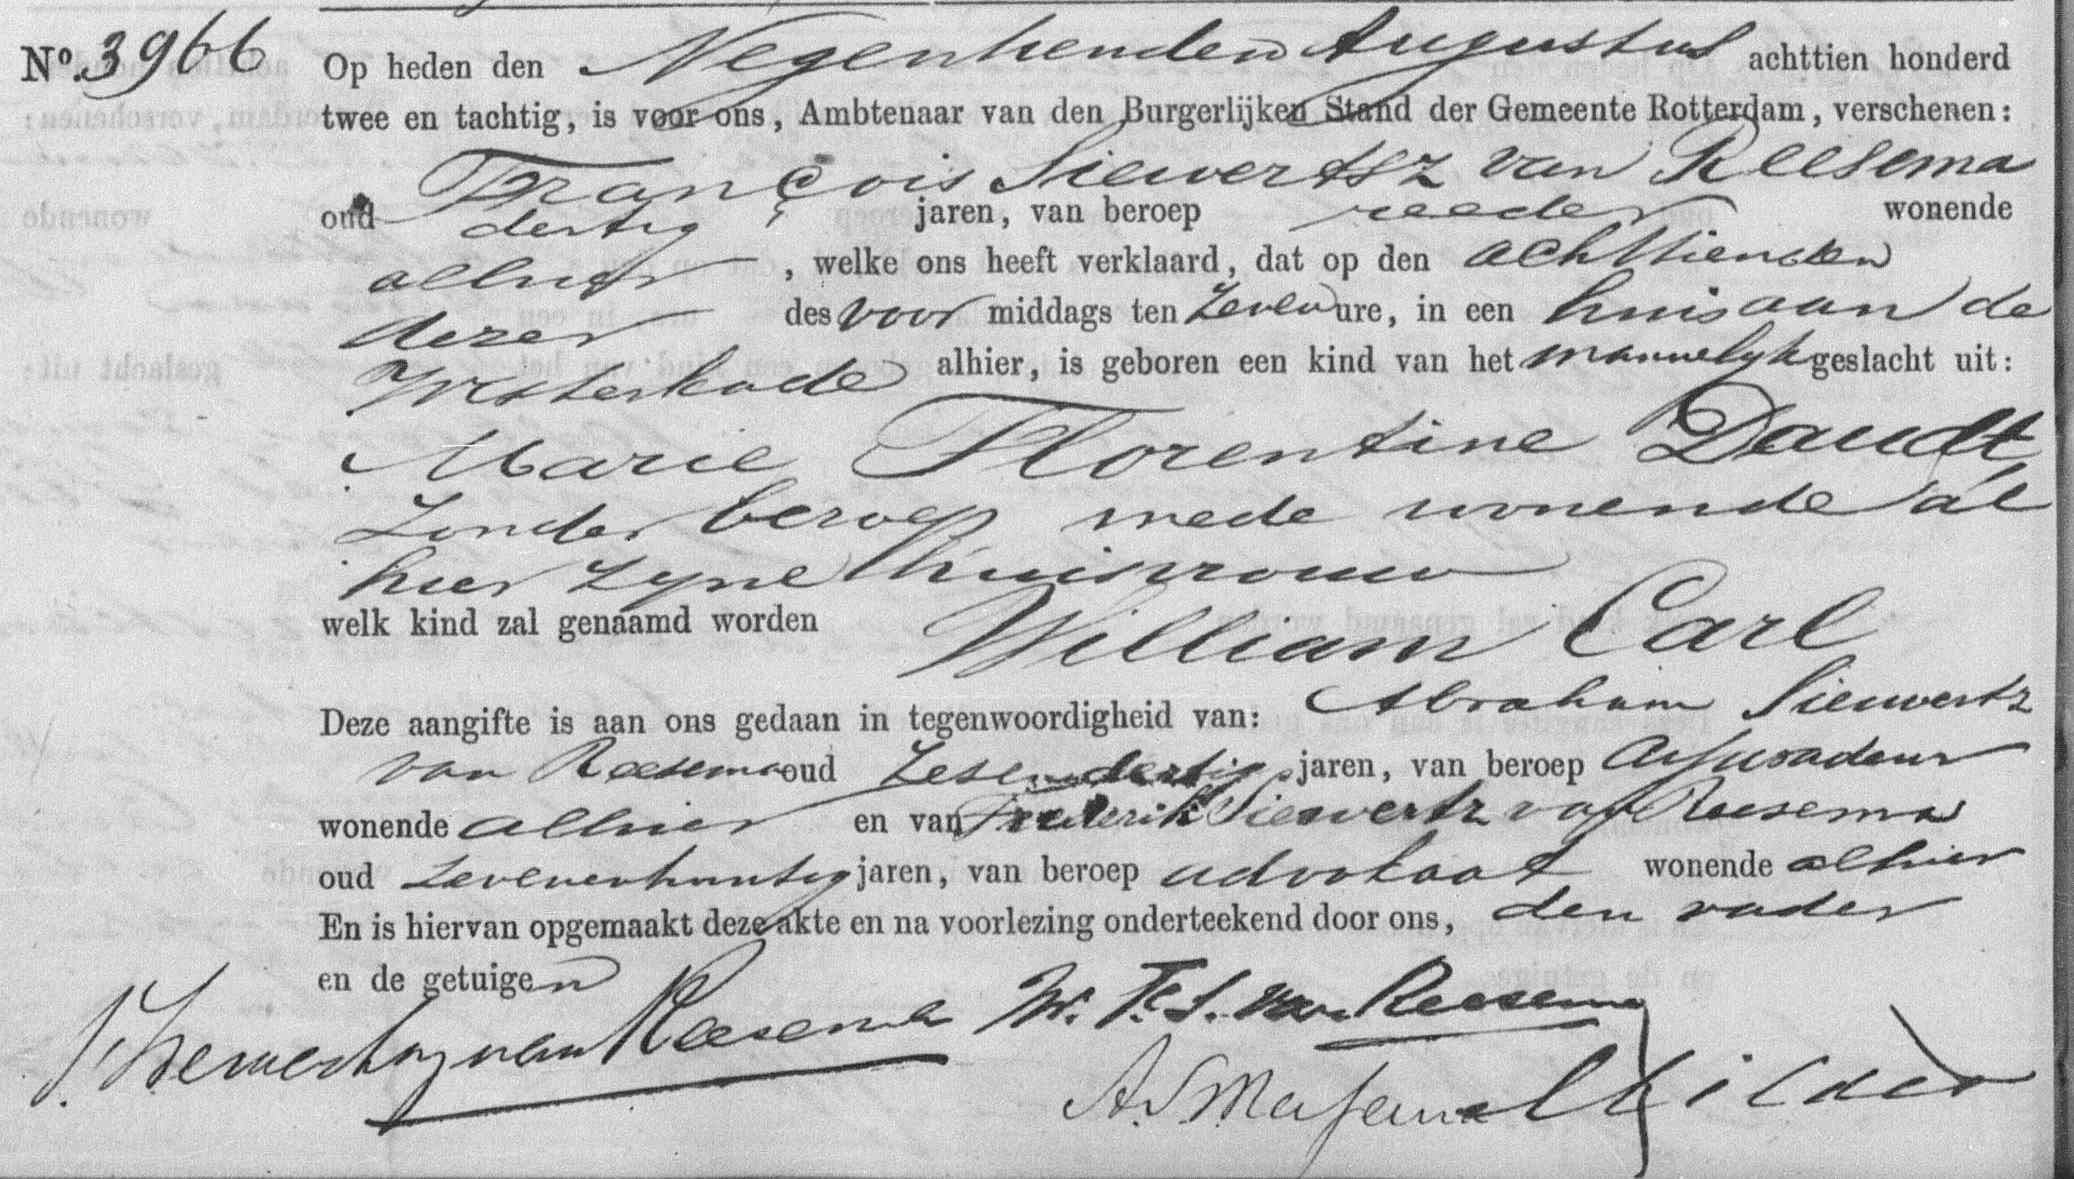 No. 3966 Op heden den Negentienden Augustus achttien honderd
twee en tachtig, is voor ons, Ambtenaar van den Burgerlijken Stand der Gemeente Rotterdam, verschenen:
François Siewertsz van Reesema
oud dertig jaren, van beroep reeder wonende
alhier, welke ons heeft verklaard, dat op den achttienden
dezer des voor middags ten zeven ure, in een huis aan de
Westerkade alhier, is geboren een kind van het mannelyk geslacht uit:
Marie Florentine Daudt
zonder beroep mede wonende al
hier zyne huisvrouw
welk kind zal genaamd worden William Carl
Deze aangifte is aan ons gedaan in tegenwoordigheid van: Abraham Siewertz
van Reesema oud zesendertig jaren, van beroep assuradeur
wonende alhier en van Frederik Siewertz van Reesema
oud zevenentwintig jaren, van beroep advokaat wonende alhier
En is hiervan opgemaakt deze akte en na voorlezing onderteekend door ons, den vader
en de getuigen
van Reesema Mr. F. S. van Reesema